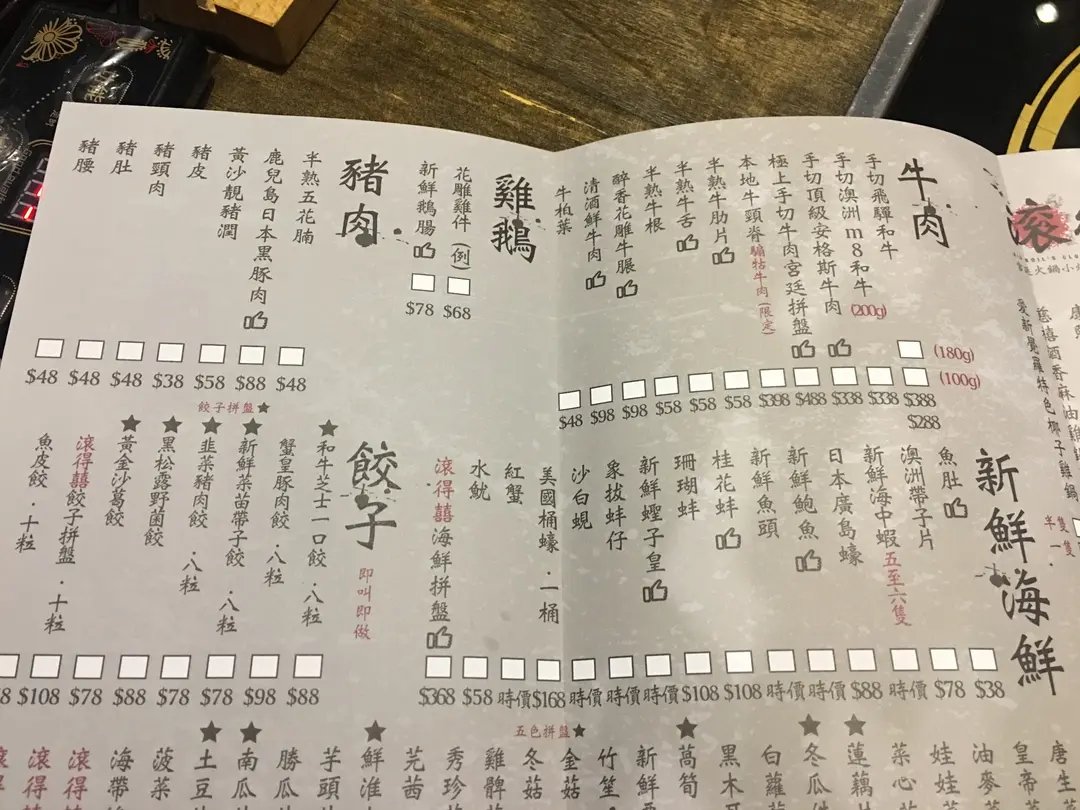 滾
火鍋小
愛新覺羅特色椰子雞鍋
牛肉
手切飛驒和牛
(180g)
(100g)
$388
$288
手切澳洲m8和牛
(200g)
$338
手切頂級安格斯牛肉
$338
極上手切牛肉宮廷拼盤
$488
本地牛頸脊 騸牯牛肉(限定)
$398
半熟牛肋片
$58
半熟牛舌
$58
半熟牛根
$58
醉香花雕牛𦟌
$98
清酒鮮牛肉
$98
牛柏葉
$48
雞鵝
花雕雞件(例)
$68
新鮮鵝腸
$78
豬肉
半熟五花腩
$48
鹿兒島日本黑豚肉
$88
黃沙靚豬潤
$58
豬皮
$38
豬頸肉
$48
豬肚
$48
豬腰
$48
新鮮海鮮
魚肚
$38
澳洲帶子片
$78
新鮮海中蝦 五至六隻
時價
日本廣島蠔
$88
新鮮鮑魚
時價
新鮮魚頭
時價
桂花蚌
$108
珊瑚蚌
$108
新鮮蟶子皇
時價
象拔蚌仔
時價
沙白蜆
時價
美國桶蠔．一桶
$168
紅蟹
時價
水魷
$58
滾得囍海鮮拼盤
$368
餃子拼盤★
餃子
即叫即做
★和牛芝士一口餃．八粒
$88
蟹皇豚肉餃．八粒
$98
★新鮮菜苗帶子餃．八粒
$78
★韭菜豬肉餃．八粒
$78
★黑松露野菌餃
$88
★黃金沙葛餃
$78
滾得囍餃子拼盤．十粒
$108
魚皮餃．十粒
五色拼盤★
唐生
皇帝
油麥
娃娃
菜心
★蓮藕
★冬瓜
白蘿
黑木
★萵筍
新鮮
竹笙
金菇
冬菇
雞髀
秀珍
芫茜
★鮮淮
芋頭
勝瓜
★南瓜
★土豆
菠菜
海帶
滾得
滾得